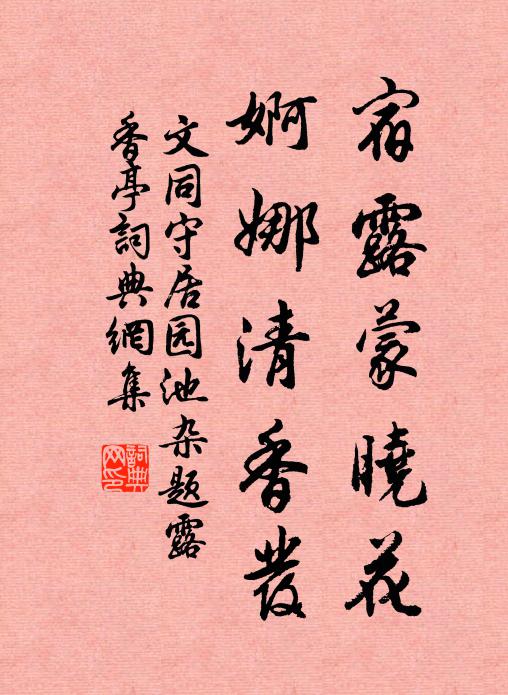 宿露蒙曉花
婀娜清香發
文同守居园池杂题露
香亭詞典網集
詞典
网印